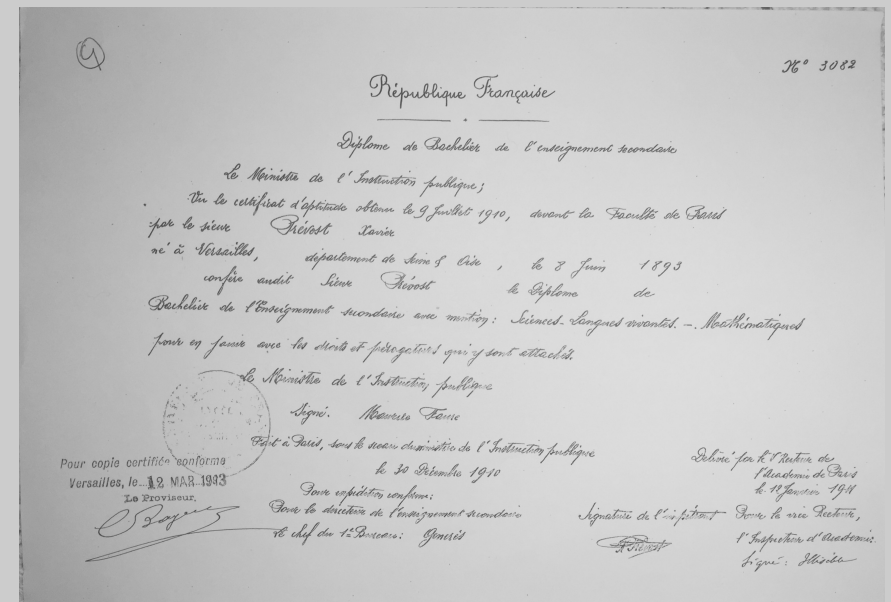 N° 3082
République Française
Diplome de Bachelier de l'enseignement secondaire
Le Ministre de l'Instruction publique;
Vu le certificat d'aptitude obtenu le 9 Juillet 1910, devant la Faculté de Paris
par le sieur Prévost Xavier
né à Versailles, département de Seine & Oise, le 8 Juin 1893
confère audit Sieur Prévost le Diplome de
Bachelier de l'Enseignement secondaire avec mention: Sciences-Langues vivantes. -. Mathématiques
pour en jouir avec les droits et qui y sont attachés.
Le Ministre de l'Instruction publique
Signé: Maurice Faure
Fait à Paris, sous le sceau du ministre de l'Instruction publique
le 30 Décembre 1910
Pour expédition conforme:
Pour le directeur de l'enseignement secondaire
Le chef du 1er Bureau:
Pour copie certifiée conforme
Versailles, le 12 MAR 1993
Le Proviseur,
Signature de l'impétrant
Prévost
Délivré par le V. Recteur de
l'Academie de Paris
le 12 Janvier 1911
Pour le vice Recteur,
l'Inspecteur d'Academie.
Signé: Illisible